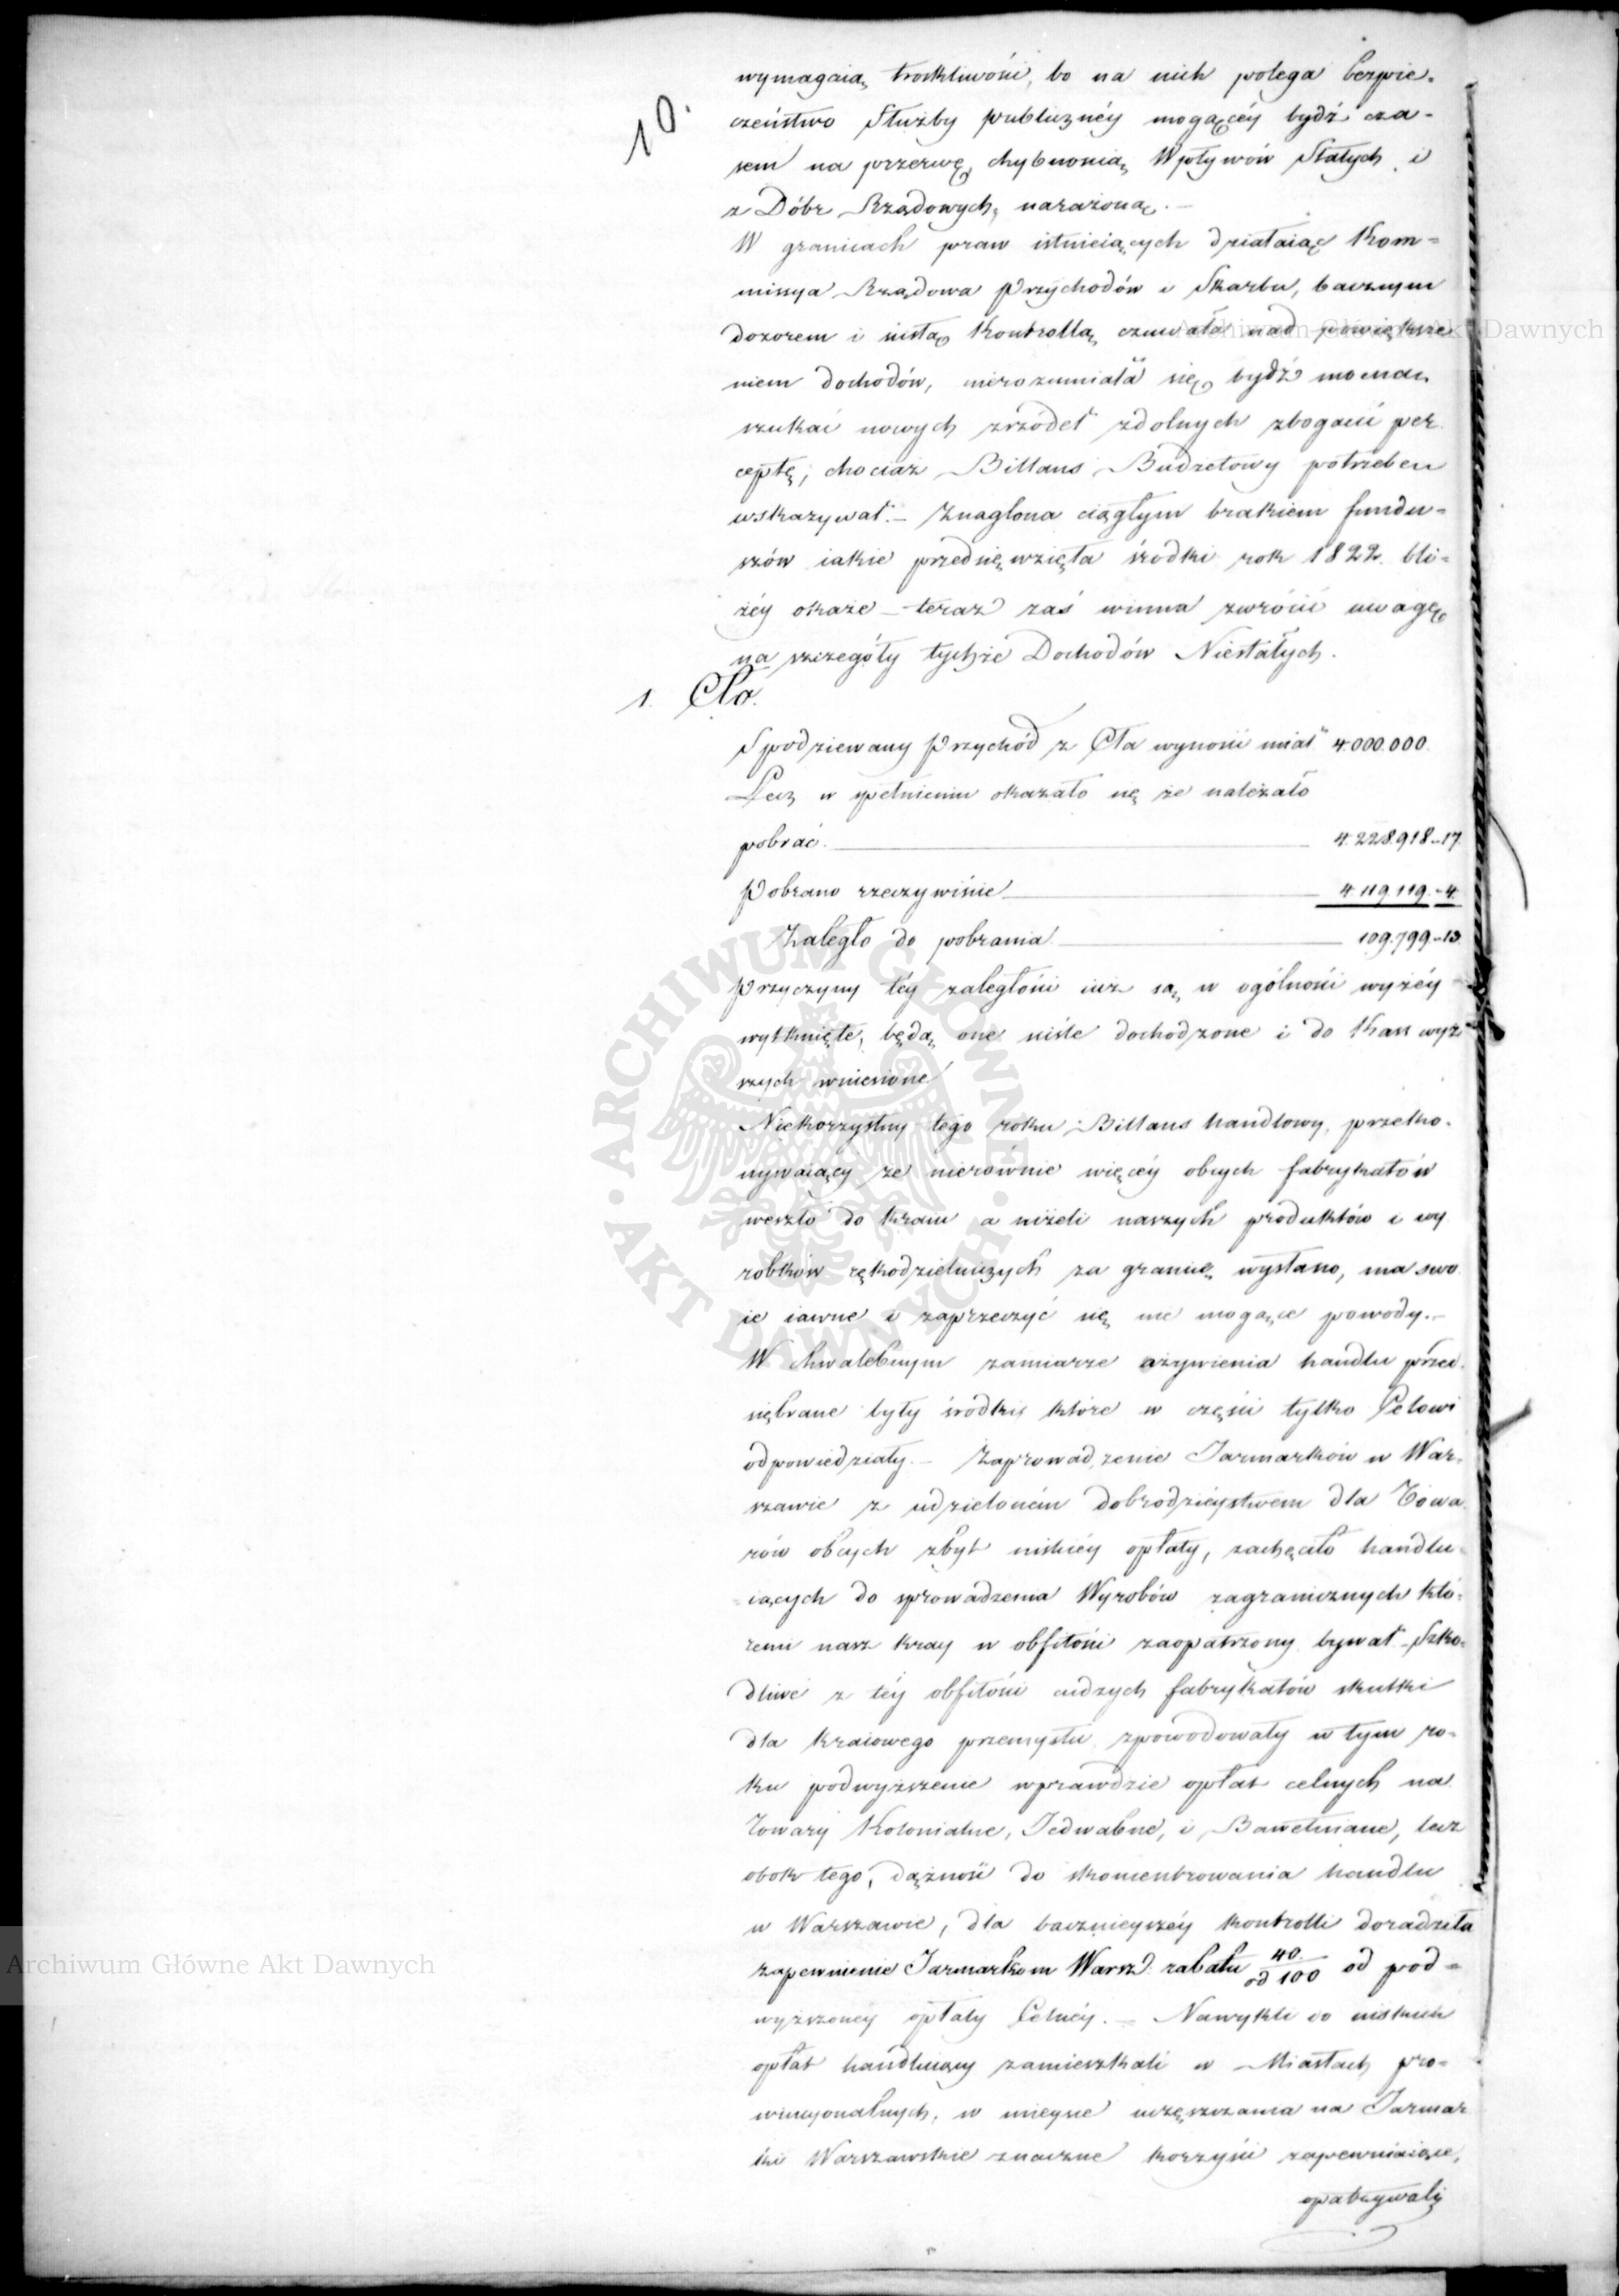 10.
wymagaią troskliwości, bo na nich polega bezpie-
czeństwo Służby publicznéy mogącéy bydź cza-
sem na przerwę, chybnonią Wpływów Stałych i
z Dóbr Rządowych, narażoną.—
W granicach praw istnieiących działaiąc Kom=
missya Rządowa Przychodów i Skarbu, bacznym
dozorem i ścisłą Kontrollą czuwała nad powiększe
niem dochodów, nierozumiała się bydź mocną
szukać nowych źrzódeł zdolnych zbogacić per
ceptę, chociaż Billans Budżetowy potrzebę
wskazywał.— Znaglona ciągłym brakiem fundu=
szów iakie przedsięwzięła środki rok 1822. bli=
żéy okaże — teraz zaś winna zwrócić uwagę
na szczegóły tychże Dochodów Niestałych.
1. Cło.
Spodziewany Przychód z Cła wynosić miał 4.000.000.
Lecz w spełnieniu okazało się że należało
pobrać. 4.228.918-17.
Pobrano rzeczywiście 4.119.119.-4.
Zaległo do pobrania 109.799.-13.
Przyczyny téy zaległości iuż są w ogólności wyżéy
wytknięte, będą one ściśle dochodzone i do Kass wyż
szych wniesione
Niekorzystny tego roku Billans handlowy, przeko-
nywaiący że nierównie więcéy obcych fabrykatów
weszło do Kraiu a niżeli naszych produktów i wy
robków rękodzielniczych za granicę wysłano, ma swo
ie iawne i zaprzeczyć się nie mogące powody.—
W chwalebnym zamiarze ożywienia handlu przed-
siębrane były środki, które w części tylko Celowi
odpowiedziały.— Zaprowadzenie Jarmarków w War-
szawie z udzieloném dobrodzieystwem dla Towa
rów obcych zbyt niskiéy opłaty, zachęcało handlu=
iących do sprowadzenia Wyrobów zagranicznych któ-
remi nasz Kray w obfitości zaopatrzony bywał.- Szko-
dliwe z téy obfitości cudzych fabrykatów skutki
dla Kraiowego przemysłu spowodowały w tym ro-
ku podwyższenie wprawdzie opłat celnych na
Towary Kolonialne, Jedwabne, i Bawełniane, lecz
obok tego, dążność do skoncentrowania handlu
w Warszawie, dla bacznieyszéy kontrolli doradziła
zapewnienie Jarmarkom Warsz. rabatu 40. od 100 od pod=
wyższoney opłaty Celnéy.— Nawykli do niskich
opłat handluiący zamieszkali w Miastach pro=
wincyonalnych, w mieysce uczęszczania na Jarmar
ki Warszawskie znaczne korzyści zapewniaiące,
opatrywali
Archiwum Główne Akt Dawnych
ARCHIWUM GŁÓWNE · AKT DAWNYCH ·
Archiwum Główne Akt Dawnych